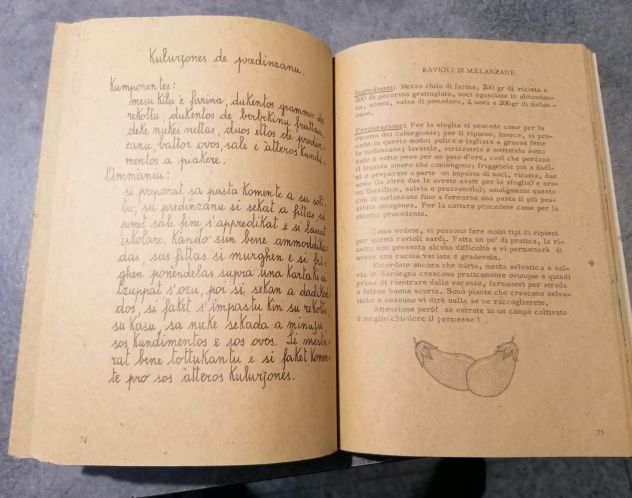 Kulurzones de predinzanu.
Kumponentes:
mesu kilu 'e farina, dukentos grammos de
rekottu, dukentos de berbekinu frattau,
deke nukes nettas, duos ettos de predin-
zanu, battor ovos, sale e atteros kundi-
mentos a piakere.
Ammaniu:
si preparat sa pasta komente a su soli-
tu; su predinzanu si sekat a fittas, si
ponet sale fine, s'appredikat e si lassat
iskolare. Kando sun bene ammoddika-
das, sas fittas si murghen e si fri-
ghen ponendelas supra una karta ki si
zuppat s'ozu, poi si sekan a dadiked-
dos, si faket s'impastu kin su rekottu,
su kasu, sa nuke sekada a minuju,
sos kundimentos e sos ovos. Si mestu-
rat bene tottukantu e si faket komen-
te pro sos atteros kulurzones.
74
RAVIOLI DI MELANZANE
Ingredienti: Mezzo chilo di farina, 200 gr di ricotta e
200 di pecorino grattugiato, noci sgusciate in abbondan-
za, aromi, salsa di pomodoro, 4 uova e 200 gr di melan-
zane.
Preparazione: Per la sfoglia si procede come per la
ricetta dei culurgionis; per il ripieno, invece, si pro-
cede in questo modo: pulite e tagliate a grosse fette
le melanzane; lavatele, strizzatele e mettetele sotto
sale e sotto peso per un paio d'ore, così che perdano
il liquido amaro che contengono; friggetele poi a dadi-
ni e preparate a parte un impasto di noci, ricotta, due
uova (le altre due le avrete usate per la sfoglia) e aro-
mi (basilico, salvia e prezzemolo); amalgamate questo
con le melanzane fino a formarne una pasta il più pos-
sibile omogenea. Per la cottura procedete come per la
ricetta precedente.
Come vedete, si possono fare molti tipi di ripieni
per questi ravioli sardi. Fatta un po' di pratica, la ri-
cetta non presenta alcuna difficoltà e vi permetterà di
avere una cucina variata e gradevole.
Ricordate ancora che mirto, menta selvatica e sal-
via in Sardegna crescono praticamente ovunque e quindi
prima di rientrare dalle vacanze, fermatevi per strada
e fatene buona scorta. Sono piante che crescono selva-
tiche e nessuno vi dirà nulla se ne raccoglierete.
Attenzione però! se entrate in un campo coltivato
è meglio chiedere il permesso!
75